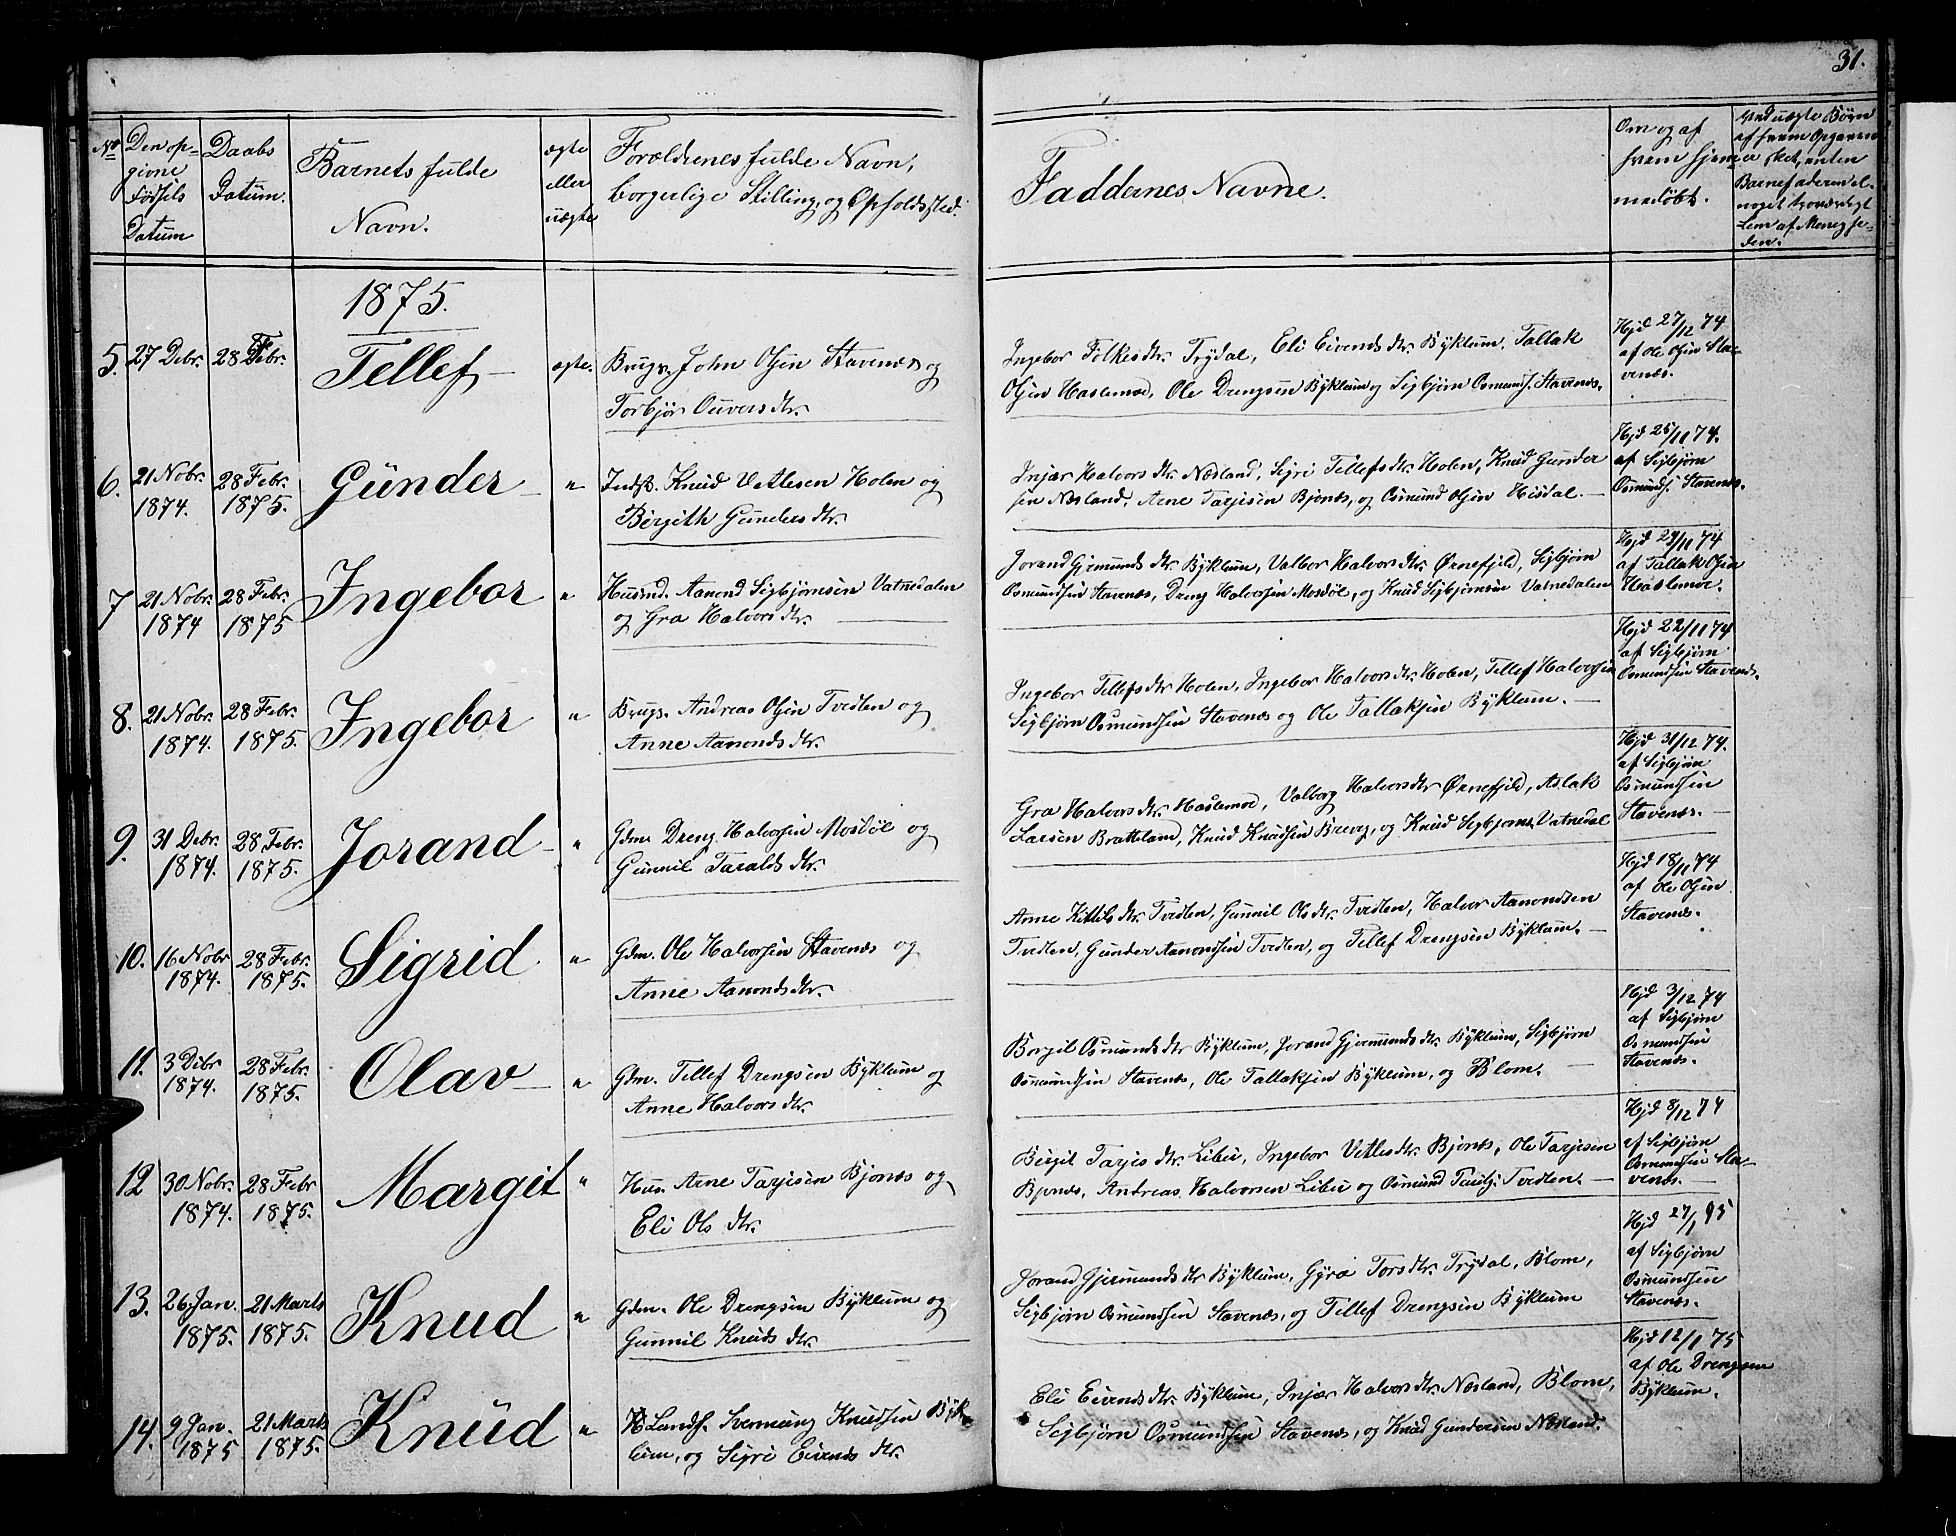 31.
No
Den op-
givne
Fødsels
Datum
Daabs
Datum.
Barnets fulde
Navn.
ægte
eller
uægte
Forældrenes fulde Navn,
borgerlige Stilling, og Opholdssted.
Faddernes Navne.
Om og af
hvem hjem
medøbt.
Ved uægte Børn
af hvem Opgaven
er sket, enten
Barnefaderen el.
noget troværdigt
Lem af Menighe-
den.
1875.
5. 27 Debr. 28 Febr. Tellef ægte. Brugr. John Olsen Stavenæs og
Torbjør Ouversdtr.
Ingebor Folkesdtr. Trydal, Eli Eivendsdtr. Byklum, Tallak
Olsen Haslemoe, Ole Drengsen Byklum og Sigbjørn Osmunds. Stavenæs.
Hjd 27/12 74
af Ole Olsen Sta-
venæs.
6. 21 Nobr. 28 Febr. Gunder " Indst. Knud Vetlesen Holen og
1874. 1875. Birgith Gundersdtr.
Injær Halvorsdtr. Næsland, Sigri Tellefsdtr. Holen, Knud Gunder
sen Næsland, Arne Tarjesen Bjonæs, og Osmund Olsen Hisdal.
Hjd 25/11 74.
af Sigbjørn
Osmunds. Stavenæs.
7 21 Nobr. 28 Febr. Ingebor " Husmd. Aanond Sigbjørnsen Vatnedalen
1874 1875 og Gro Halvorsdtr.
Jorand Gjermundsdtr. Byklum, Valbor Halvorsdtr. Ørnefjeld, Sigbjørn
Osmundsen Stavenæs, Dreng Halvorsen Mosdøl, og Knud Sigbjørnsen Vatnedalen
Hjd 29/11 74
af Tallak Olsen
Haslemoe.
8. 21 Nobr. 28 Febr. Ingebor " Brugr. Andreas Olsen Tvedten og
1874. 1875. Anne Aanondsdtr.
Ingebor Tellefsdtr Holen, Ingebor Halvorsdtr. Holen, Tellef Halvorsen
Sigbjørn Osmundsen Stavenæs og Ole Tallaksen Byklum.
Hjd 22/11 74
af Sigbjørn
Osmundsen Stavenæs.
9. 31 Debr. 28 Febr. Jorand " Gdm Dreng Halvorsen Mosdøl og
1874. 1875. Gunnil Taraldsdtr.
Gro Halvorsdtr. Haslemoe, Valborg Halvorsdtr Ørnefjeld, Aslak
Larsen Bratteland, Knud Knudsen Breveg, og Knud Sigbjørns. Vatnedal
Hjd 31/12 74.
af Sigbjørn
Osmundsen
Stavenæs.
10. 16 Nobr 28 Febr. Sigrid " Gdm. Ole Halvorsen Stavenæs og
1874. 1875. Anne Aanondsdtr.
Anne Kittilsdtr. Tvedten, Gunnil Olsdtr. Tvedten, Halvor Aanondsen
Tvedten, Gunder Aanondsen Tvedten, og Tellef Drengsen Byklum.
Hjd 18/11 74
af Ole Olsen
Stavenæs.
11. 3 Debr 28 Febr. Olav " Gdm. Tellef Drengsen Byklum og
1874. 1875. Anne Halvorsdtr.
Borgil Osmundsdtr Byklum, Jorand Gjermundsdtr. Byklum, Sigbjørn
Osmundsen Stavenæs, Ole Tallaksen Byklum, og Blom.
Hjd 3/12 74
af Sigbjørn
Osmundsen
Stavenæs.
12 30 Nobr. 28 Febr Margit " Hus. Arne Tarjesen Bjonæs og
1874. 1875. Eli Olsdtr.
Birgit Tarjesdtr. Libu, Ingebor Vetlesdtr. Bjonæs, Ole Tarjesen
Bjonæs, Andreas Halvorsen Libu og Osmund Tvedten.
Hjd 8/12 74
af Sigbjørn
Osmundsen Sta-
venæs.
13. 26 Jan. 21 Marts Knud " Gdm. Ole Drengsen Byklum og
1875. 1875. Gunnil Knudsdtr.
Jorand Gjermundsdtr Byklum, Gyro Torsdtr. Trydal, Blom,
Sigbjørn Osmundsen Stavenæs, og Tellef Drengsen Byklum
Hjd 27/1 75
af Sigbjørn
Osmundsen
Stavenæs.
14. 9 Jan. 21 Marts Knud " Landh. Svennung Knudsen Byk-
1875 1875. lum, og Sigri Eivendsdtr.
Eli Eivendsdtr. Byklum, Injær Halvorsdtr. Næsland, Blom,
Sigbjørn Osmundsen Stavenæs, og Knud Gundersen Næsland.
Hjd 12/1 75
af Ole Drengsen
Byklum.